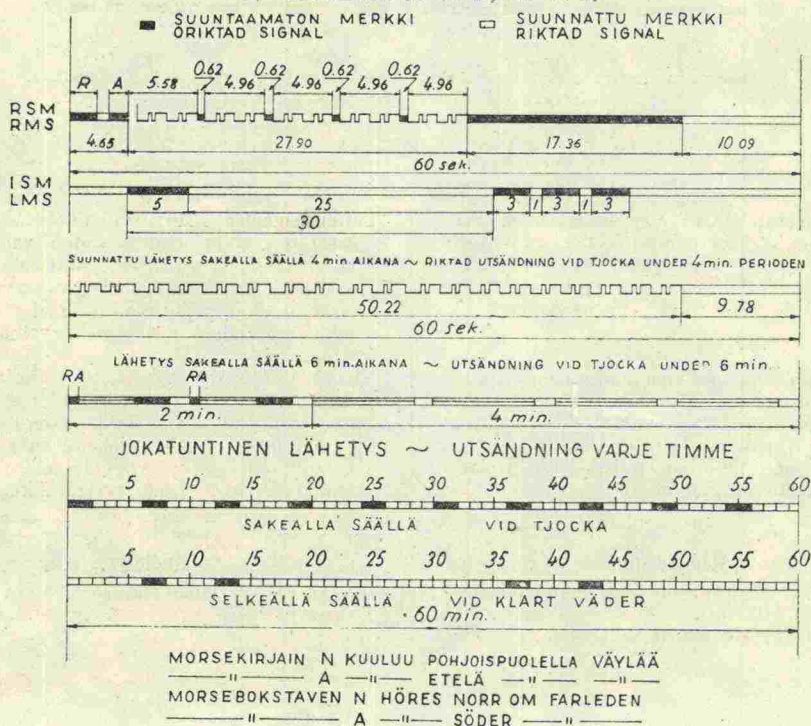 SUUNTAAMATON MERKKI SUUNNATTU MERKKI
ORIKTAD SIGNAL RIKTAD SIGNAL
R A 5.58 0.62 4.96 0.62 4.96 0.62 4.96 0.62 4.96
RSM
RMS
4.65 27.90 17.36 10 09
60 sek.
ISM
LMS
5 25 3 1 3 1 3
30
SUUNNATTU LÄHETYS SAKEALLA SÄÄLLÄ 4 min. AIKANA ~ RIKTAD UTSÄNDNING VID TJOCKA UNDER 4 min. PERIODEN
50.22 9.78
60 sek.
LÄHETYS SAKEALLA SÄÄLLÄ 6 min. AIKANA ~ UTSÄNDNING VID TJOCKA UNDER 6 min.
RA RA
2 min. 4 min.
JOKATUNTINEN LÄHETYS ~ UTSÄNDNING VARJE TIMME
5 10 15 20 25 30 35 40 45 50 55 60
SAKEALLA SÄÄLLÄ VID TJOCKA
5 10 15 20 25 30 35 40 45 50 55 60
SELKEÄLLÄ SÄÄLLÄ VID KLART VÄDER
60 min.
MORSEKIRJAIN N KUULUU POHJOISPUOLELLA VÄYLÄÄ
—"— A —"— ETELÄ —"— —"—
MORSEBOKSTAVEN N HÖRES NORR OM FARLEDEN
—"— A —"— SÖDER —"—